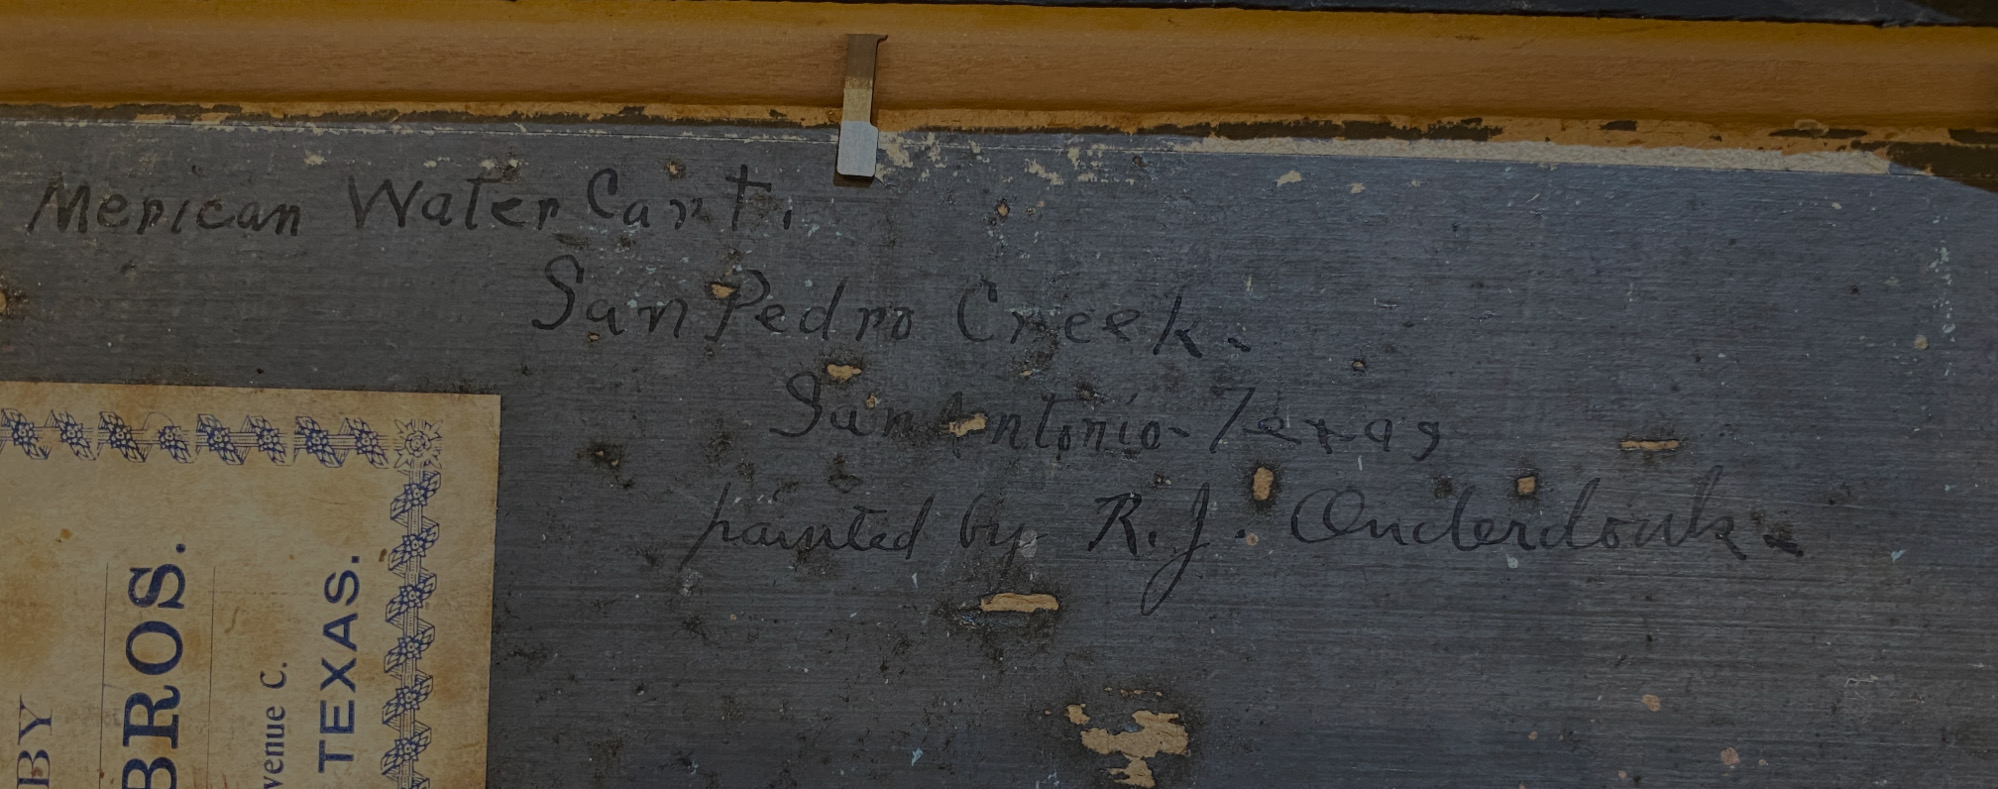 Mexican Water Cart.
San Pedro Creek.
San Antonio - Texas
painted by R. J. Onderdonk.
BY
BROS.
venue C.
TEXAS.